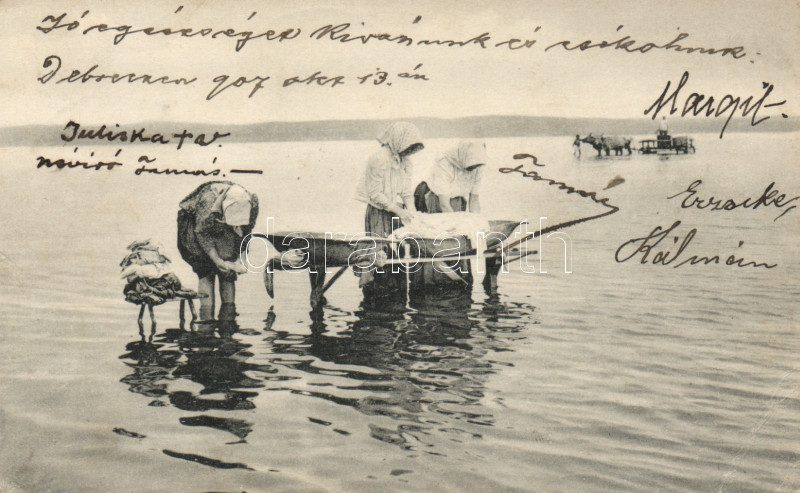 Jó egészséget kivánunk és csókolunk:
Debreczen 907 okt 13.-án
Margit
Juliska
Tamás.—
Tamás
Erzsike,
Kálmán
darabanth